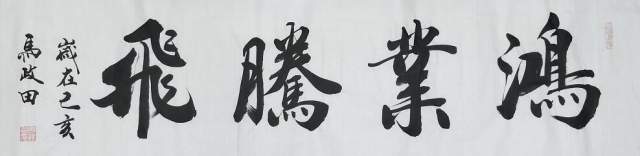 鴻業騰飛
歲在己亥
馬政田